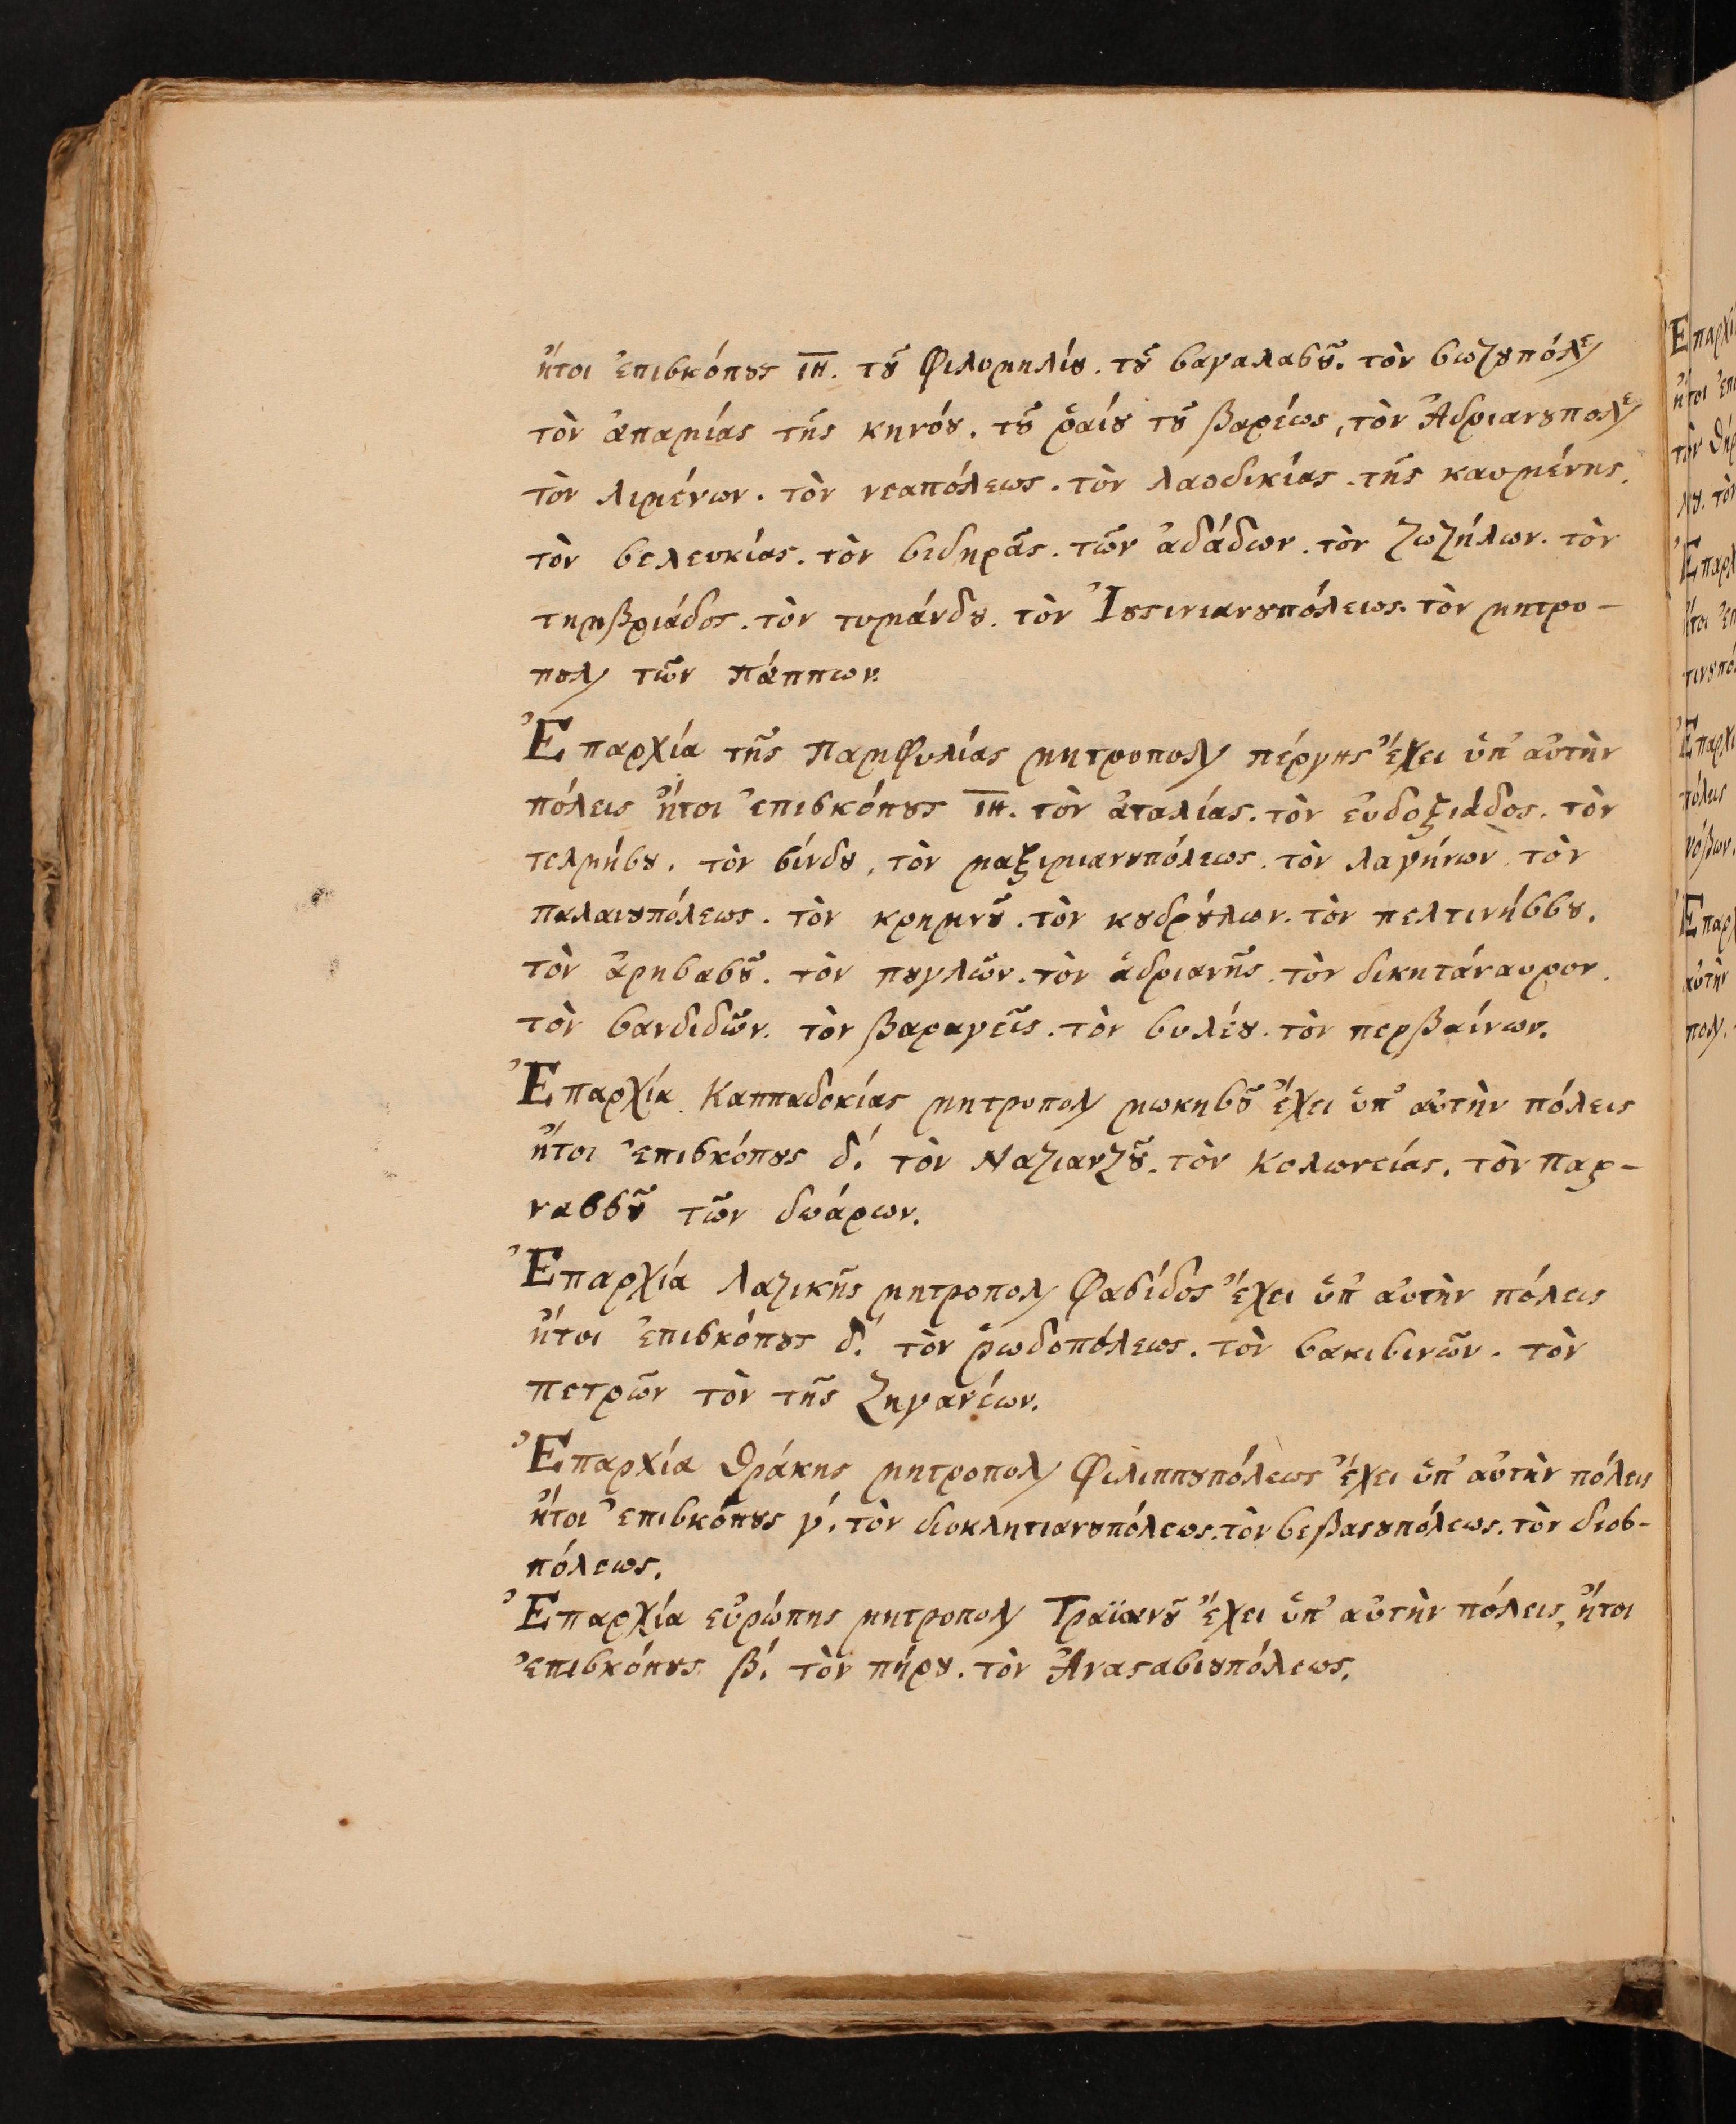 ἤτοι ἐπισκόπους ιη. τοῦ Φιλομηλίου. τοῦ σαγαλασοῦ. τὸν σωζουπόλε
τὸν ἀπαμίας τῆς κηνόυ. τοῦ ῥαίου τοῦ βαρέως, τὸν Ἀδριανουπολε
τὸν λιμένων. τὸν νεαπόλεως. τὸν λαοδικίας. τῆς καυμένης.
τὸν σελευκίας. τὸν σιδηρᾶς. τῶν ἀδάδων. τὸν ζωζήλων. τὸν
τημβριάδος. τὸν τυμάνδου. τὸν Ἰουστινιανουπόλεως. τὸν μητρο-
πολ τῶν πάππων.
Ἐπαρχία τῆς Παμφυλίας μητροπολ πέργης ἔχει ὑπ' αὐτὴν
πόλεις ἤτοι ἐπισκόπους ιη. τὸν ἀταλίας. τὸν εὐδοξιάδος. τὸν
τελμήσου. τὸν σίνδου, τὸν μαξιμιανουπόλεως. τὸν λαγήνων τὸν
παλαιουπόλεως. τὸν κρημνοῦ. τὸν κουδρούλων. τὸν πελτινήσσου.
τὸν ἀρησασοῦ. τὸν πουγλῶν. τὸν ἁδριανῆς. τὸν δικητάναυρον.
τὸν σανδιδῶν. τὸν βαραγεῖς. τὸν συλέου. τὸν περβαίνων.
Ἐπαρχία Καππαδοκίας μητροπολ μωκησοῦ ἔχει ὑπ' αὐτὴν πόλεις
ἤτοι ἐπισκόπους δ'. τὸν Ναζιανζοῦ. τὸν Κολωνείας. τὸν παρ-
νασσοῦ τῶν δωάρων.
Ἐπαρχία Λαζικῆς μητροπολ Φασίδος ἔχει ὑπ' αὐτὴν πόλεις
ἤτοι ἐπισκόπους δ'. τὸν ῥωδοπόλεως. τὸν σακισινῶν. τὸν
πετρῶν τὸν τῆς Ζηγανέων.
Ἐπαρχία Θράκης μητροπολ Φιλιππουπόλεως ἔχει ὑπ' αὐτὴν πόλεις
ἤτοι ἐπισκόπους γ'. τὸν διοκλητιανουπόλεως. τὸν σεβαστουπόλεως. τὸν διοσ-
πόλεως.
Ἐπαρχία εὐρώπης μητροπολ Τραϊανοῦ ἔχει ὑπ' αὐτὴν πόλεις, ἤτοι
ἐπισκόπους β'. τὸν πήρου. τὸν Ἀναστασιουπόλεως.